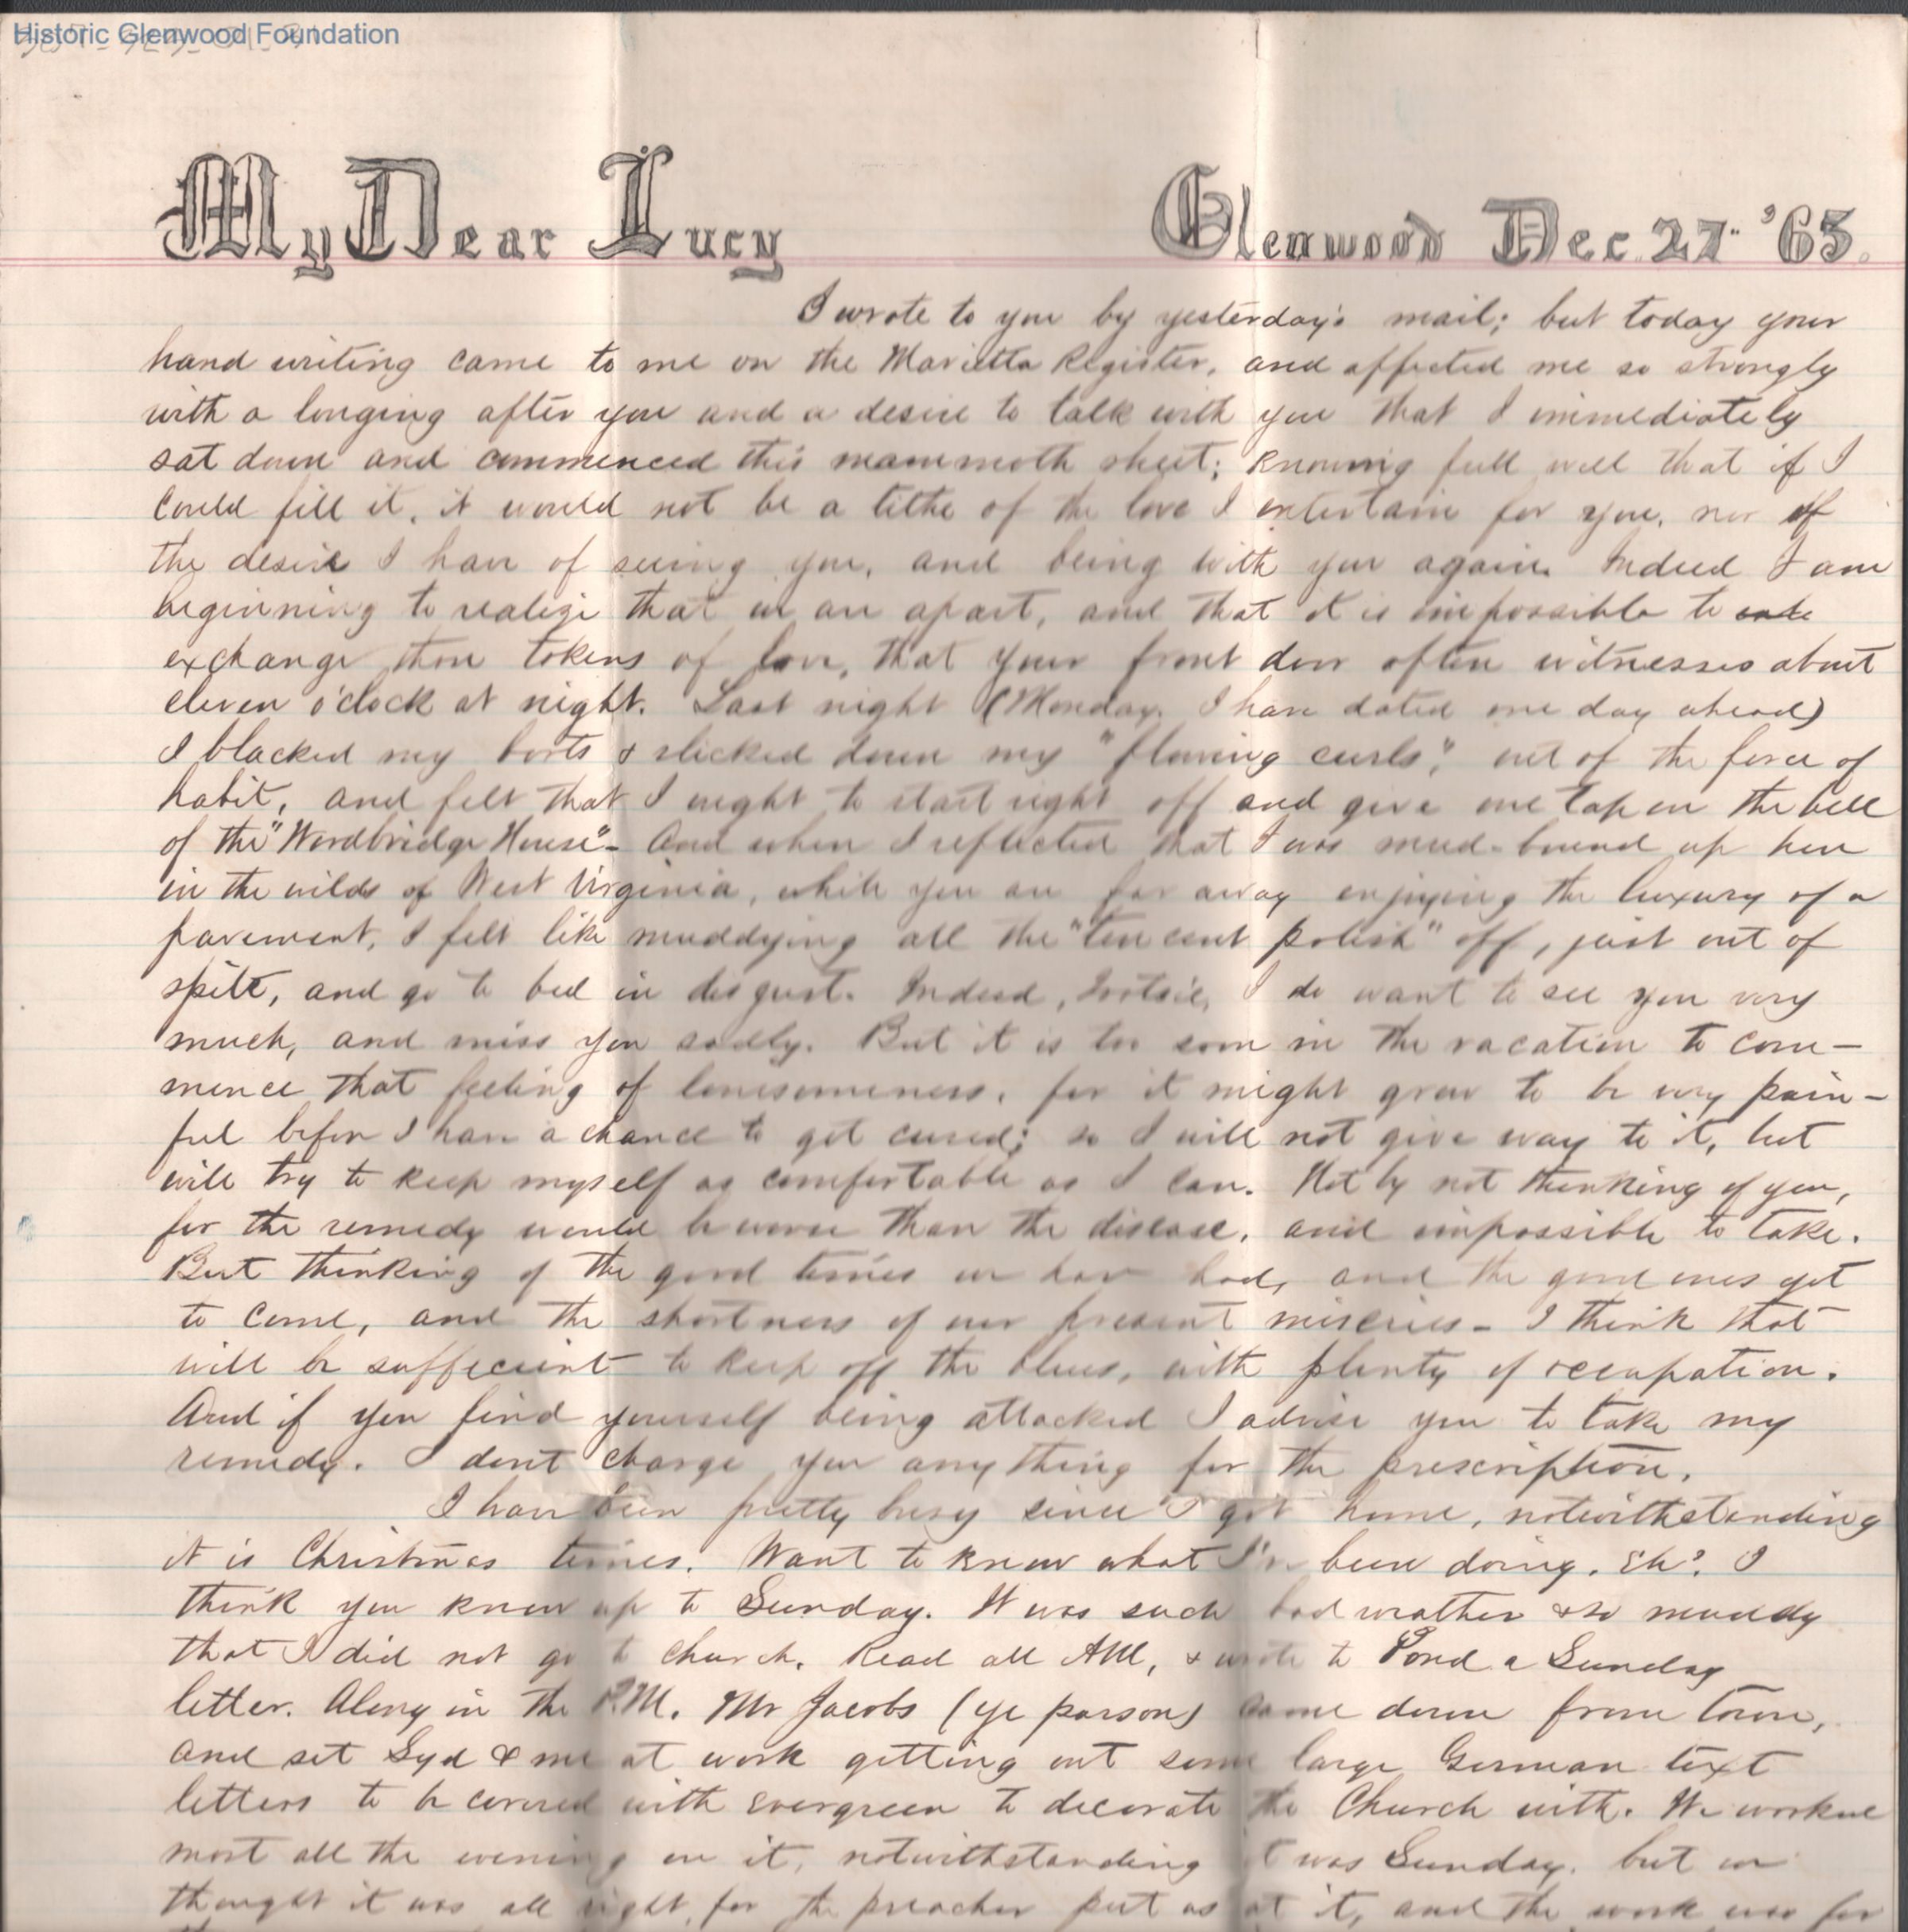 Historic Glenwood Foundation
My Dear Lucy Glenwood Dec. 27" '65.
I wrote to you by yesterday's mail; but today your
hand writing came to me on the Marietta Register, and affected me so strongly
with a longing after you and a desire to talk with you that I immediately
sat down and commenced this mammoth sheet; knowing full well that if I
could fill it, it would not be a tithe of the love I entertain for you, nor of
the desire I have of seeing you, and being with you again. Indeed I am
beginning to realize that we are apart, and that it is impossible to
exchange those tokens of love, that your front door often witnesses about
eleven o'clock at night. Last night (Monday. I have dated one day ahead)
I blacked my boots & slicked down my "flowing curls", out of the force of
habit, and felt that I ought to start right off and give one tap on the bell
of the "Woodbridge House"- And when I reflected that I was mud-bound up here
in the wilds of West Virginia, while you are far away enjoying the luxury of a
pavement, I felt like muddying all the "ten cent polish" off, just out of
spite, and go to bed in disgust. Indeed, Tootsie, I do want to see you very
much, and miss you sadly. But it is too soon in the vacation to com-
mence that feeling of lonesomeness, for it might grow to be very pain-
ful before I have a chance to get cured; so I will not give way to it, but
will try to keep myself as comfortable as I can. Not by not thinking of you,
for the remedy would be worse than the disease, and impossible to take.
But thinking of the good times we have had, and the good ones yet
to come, and the shortness of our present miseries- I think that
will be suffecient to keep off the blues, with plenty of occupation.
And if you find yourself being attacked I advise you to take my
remedy. I dont charge you any thing for the prescription.
I have been pretty busy since I got home, notwithstanding
it is Christmas times. Want to know what I've been doing. Eh? I
think you know up to Sunday. It was such bad weather & so muddy
that I did not go to church. Read all AM, & wrote to Pond a Sunday
letter. Along in the P.M. Mr Jacobs (ye parson) came down from town,
and set Syd & me at work getting out some large German text
letters to be covered with evergreen to decorate the Church with. We worked
most all the evening on it, notwithstanding it was Sunday. but we
thought it was all right, for the preacher put us at it, and the work was for